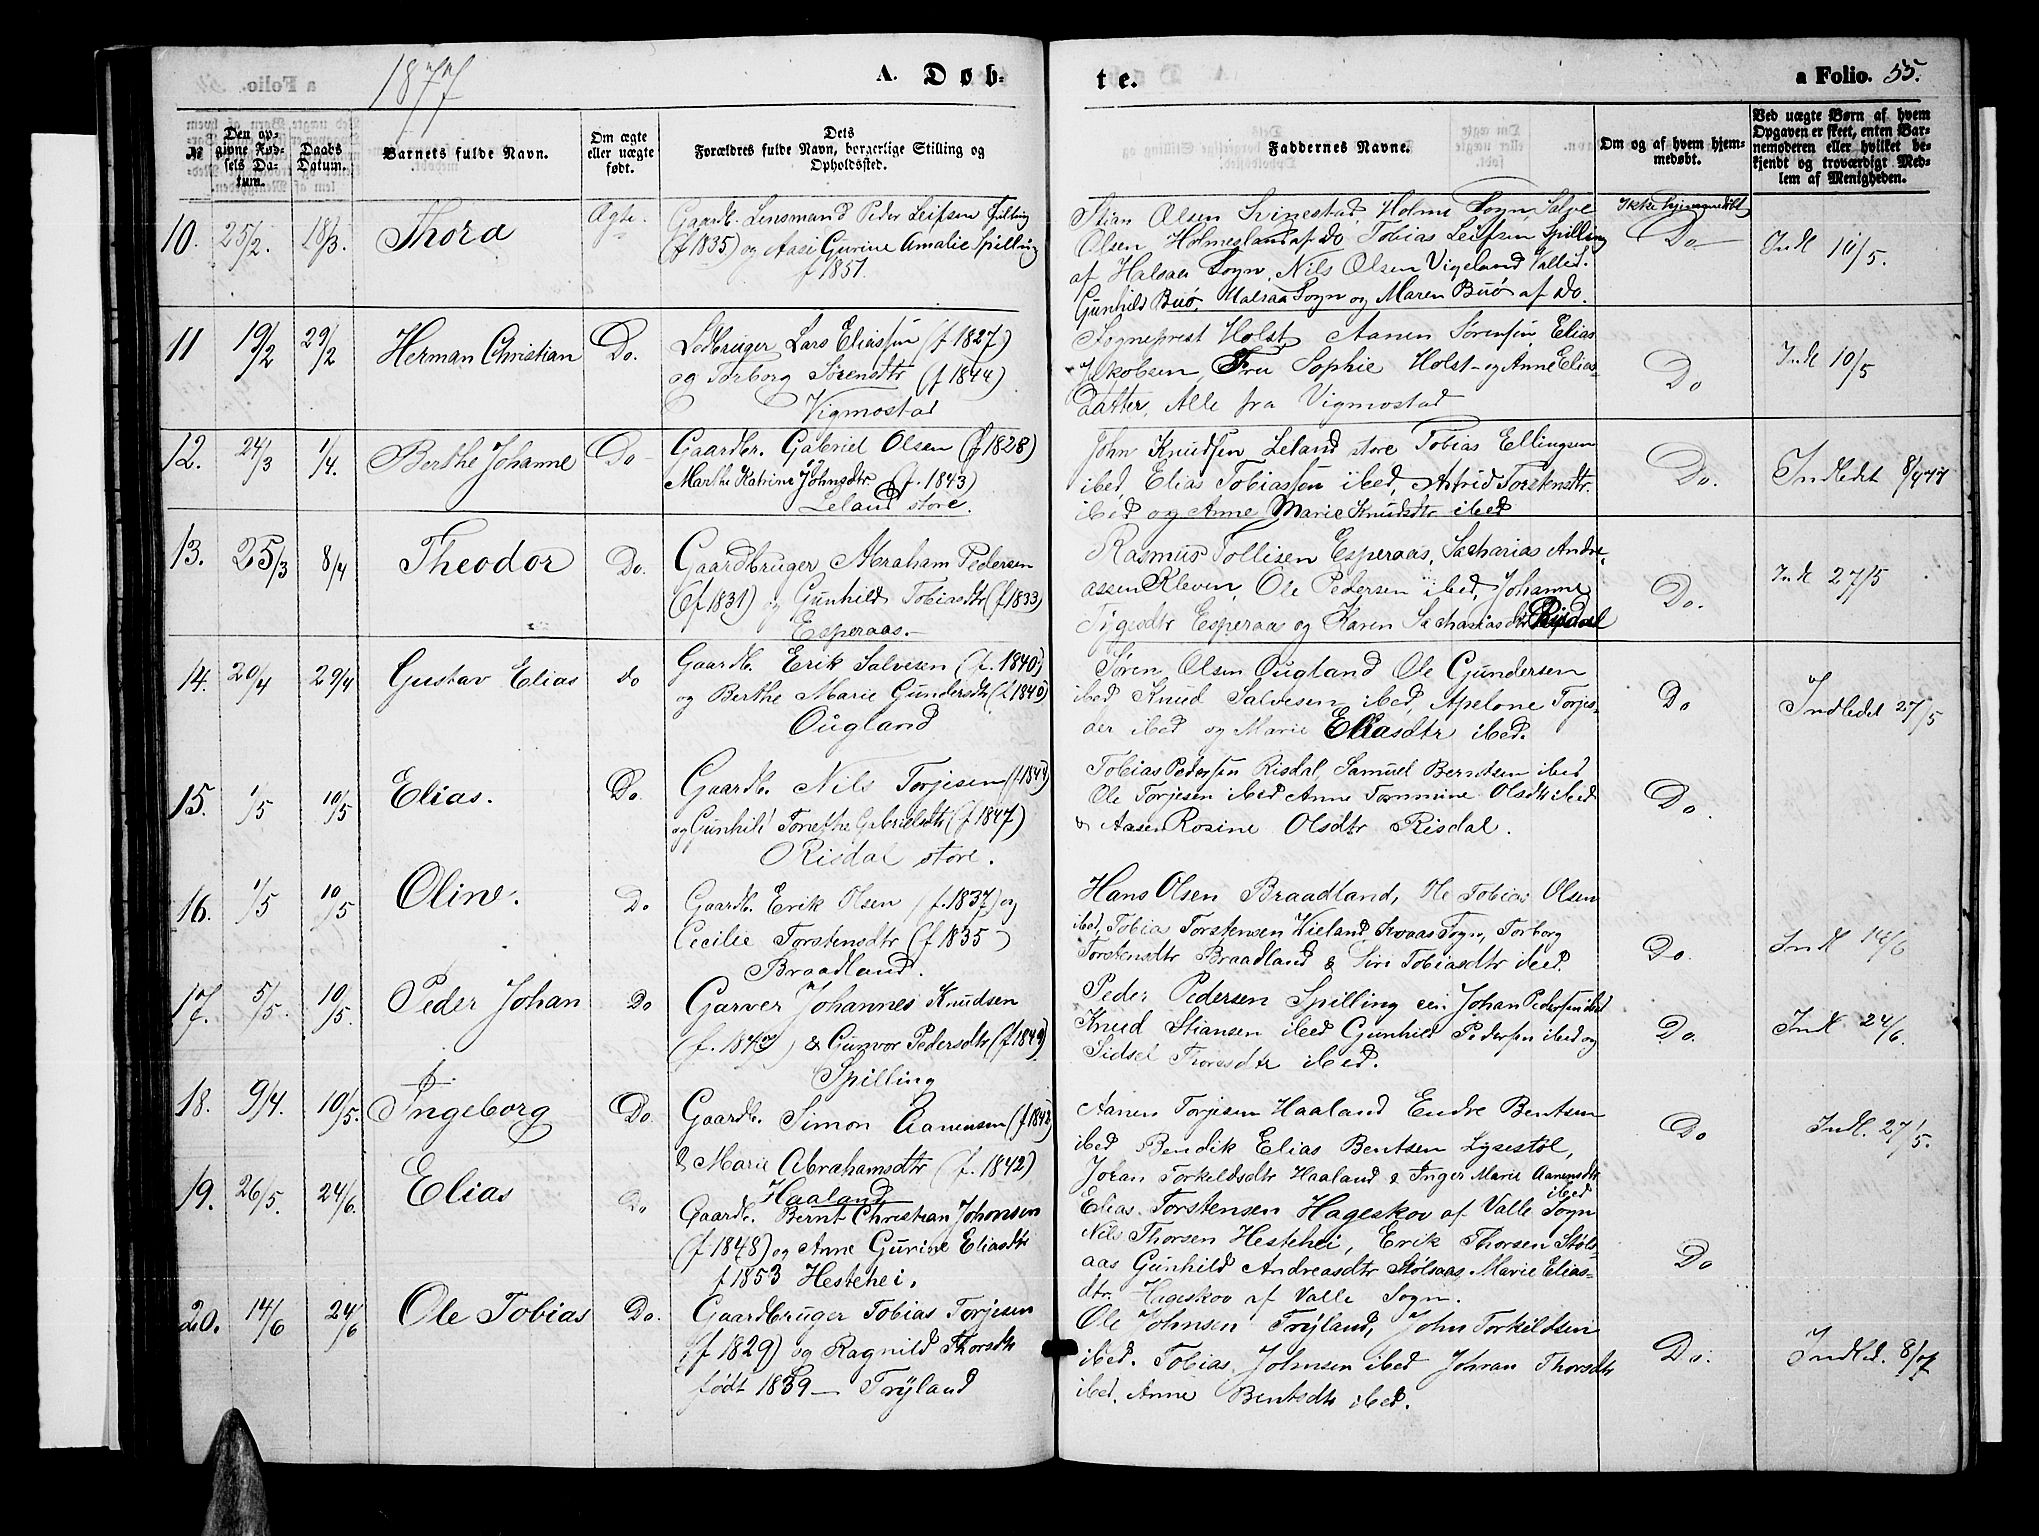 1877
A. Døb-
te.
a Folio. 55.
№
Den op-
givne Fød-
sels Da-
tum.
Daabs
Datum.
Barnets fulde Navn.
Om ægte
eller uægte
født.
Dets
Forældres fulde Navn, borgerlige Stilling og
Opholdssted.
Faddernes Navne.
Om og af hvem hjem-
medøbt.
Ved uægte Børn af hvem
Opgaven er skeet, enten Bar-
nemoderen eller hvilket be-
kjendt og troværdigt Med-
lem af Menigheden.
10. 25/2. 18/3. Thora Ægte.
Gaardb. Lensmand Peder Leifsen Spilling
(f 1835) og Aasi Gurine Amalie Spilling
f 1851.
Stian Olsen Svinestad, Holme Sogn, Salve
Olsen Holmesland af Do Tobias Leifsen Spilling
af Halsaa Sogn, Nils Olsen Vigeland Valle S.
Gunhild Buø, Halsaa Sogn og Maren Buø af Do.
Ikke hjemmedøbt
Do
Indl 10/5.
11 19/2 29/2 Herman Christian Do.
Lodbruger Lars Eliassen (f 1827)
og Torborg Sørensdtr (f 1844)
Vigmostad
Sogneprest Holst, Aanen Sørensen, Elias
Jakobsen, Fru Sophie Holst og Anne Elias-
datter, Alle fra Vigmostad
Do
Indl 10/5
12. 24/3 1/4. Berthe Johanne Do
Gaardbr. Gabriel Olsen (f 1828)
Marthe Katrine Johnsdtr (f. 1843)
Leland store.
John Knudsen Leland store Tobias Ellingsen
ibed, Elias Tobiassen ibed, Astrid Torstensdtr.
ibed og Anne Marie Knudsdtr ibed
Do.
Indledet 8/4 77
13. 25/3 8/4 Theodor Do.
Gaardbruger Abraham Pedersen
(f 1831) og Gunhild Tobiasdtr (f 1833)
Esperaas.
Rasmus Tollisen Esperaas, Sacharias Andre-
assen Kleven, Ole Pedersen ibed, Johanne
Tygesdtr Esperaas og Karen Sachariasdtr Risdal
Do.
Indl 27/5
14. 20/4 29/4 Gustav Elias Do
Gaardb. Erik Salvesen (f. 1840)
og Berthe Marie Gundersdtr (f 1840)
Ougland
Søren Olsen Ougland Ole Gundersen
ibed Knud Salvesen ibed, Apelone Torjes-
ibed og Marie Eliasdtr ibed.
Do
Indledet 27/5
15. 1/5 10/5 Elias. Do.
Gaardb. Nils Torjesen
og Gunhild Tonethe Gabrielsdtr (f 1847)
Risdal store.
Tobias Pedersen Risdal, Samuel Berntsen ibed
Ole Torjesen ibed Anne Tommine Olsdtr ibed
& Aasen Rosine Olsdtr Risdal.
Do.
16. 1/5 10/5 Oline. Do
Gaardb. Erik Olsen (f. 1837) og
Cecilie Torstensdtr (f 1835)
Braadland.
Hans Olsen Braadland, Ole Tobias Olsen
ibed, Tobia Torstensen Vieland Kvaas Sogn, Torborg
Torstensdtr Braadland & Siri Tobiasdtr ibed.
Do.
Indl 14/6
17. 5/5. 10/5. Peder Johan Do
Garver Johannes Knudsen
& Gunvor Pedersdtr (f 1849)
Spilling
Peder Pedersen Spilling Johan Pedersen ibed
Knud Stiansen ibed Gunhild Pedersen ibed og
Sidsel Thoresdtr ibed.
Do.
Indl 24/6.
18. 9/4. 10/5. Ingeborg Do.
Gaardb. Simon Aanensen
& Marie Abrahamsdtr (f. 1842)
Haaland
Aanen Torjesen Haaland Endre Bentsen
ibed Bendik Elias Bentsen Lysestøl,
Joran Torkeldsdtr Haaland & Inger Marie Aanensdtr
ibed
Do
Indl. 27/5.
19. 26/5. 24/6. Elias Do
Gaardb. Bernt Christian Johnsen
(f 1848) og Anne Gurine Eliasdtr
f 1853 Hestehei.
Elias Torstensen Hageskov af Valle Sogn
Nils Thorsen Hestehei, Erik Thorsen Støls-
aas Gunhild Andreasdtr Stølsaas, Marie Elias-
dtr. Hegeskov af Valle Sogn.
Do
20. 14/6 24/6 Ole Tobias Do.
Gaardbruger Tobias Torjesen
(f 1829) og Ragnild Thorsdtr
født 1839 – Tryland
Ole Johnsen Tryland, John Torkildsen
ibed. Tobias Johnsen ibed Johran Thorsdtr
ibed. Anne Bentsdtr ibed.
Do.
Indled. 8/7